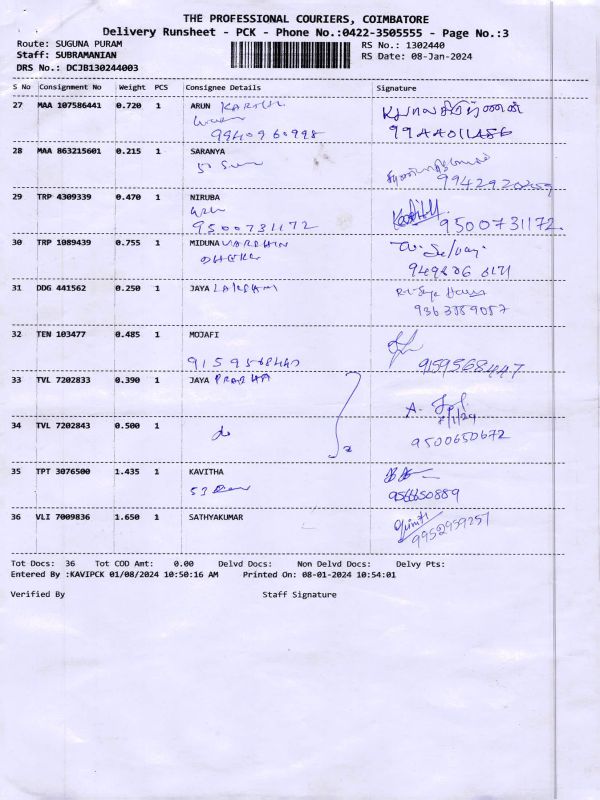 THE PROFESSIONAL COURIERS, COIMBATORE
Delivery Runsheet - PCK - Phone No.:0422-3505555 - Page No.:3
Route: SUGUNA PURAM RS No.: 1302440
Staff: SUBRAMANIAN RS Date: 08-Jan-2024
DRS No.: DCJB130244003
S No Consignment No Weight PCS Consignee Details Signature
27 MAA 107586441 0.720 1 ARUN
9940960998
9944011486
28 MAA 863215601 0.215 1 SARANYA
29 TRP 4309339 0.470 1 NIRUBA
9500731172 9500731172
30 TRP 1089439 0.755 1 MIDUNA VARDHIN
31 DDG 441562 0.250 1 JAYA LAKSHMI
32 TEN 103477 0.485 1 MOJAFI
9159568447 9159568447
33 TVL 7202833 0.390 1 JAYA PRABHA
A.
8/1/24
34 TVL 7202843 0.500 1
do 9500650672
35 TPT 3076500 1.435 1 KAVITHA
9566650889
36 VLI 7009836 1.650 1 SATHYAKUMAR
9952959257
Tot Docs: 36 Tot COD Amt: 0.00 Delvd Docs: Non Delvd Docs: Delvy Pts:
Entered By :KAVIPCK 01/08/2024 10:50:16 AM Printed On: 08-01-2024 10:54:01
Verified By Staff Signature